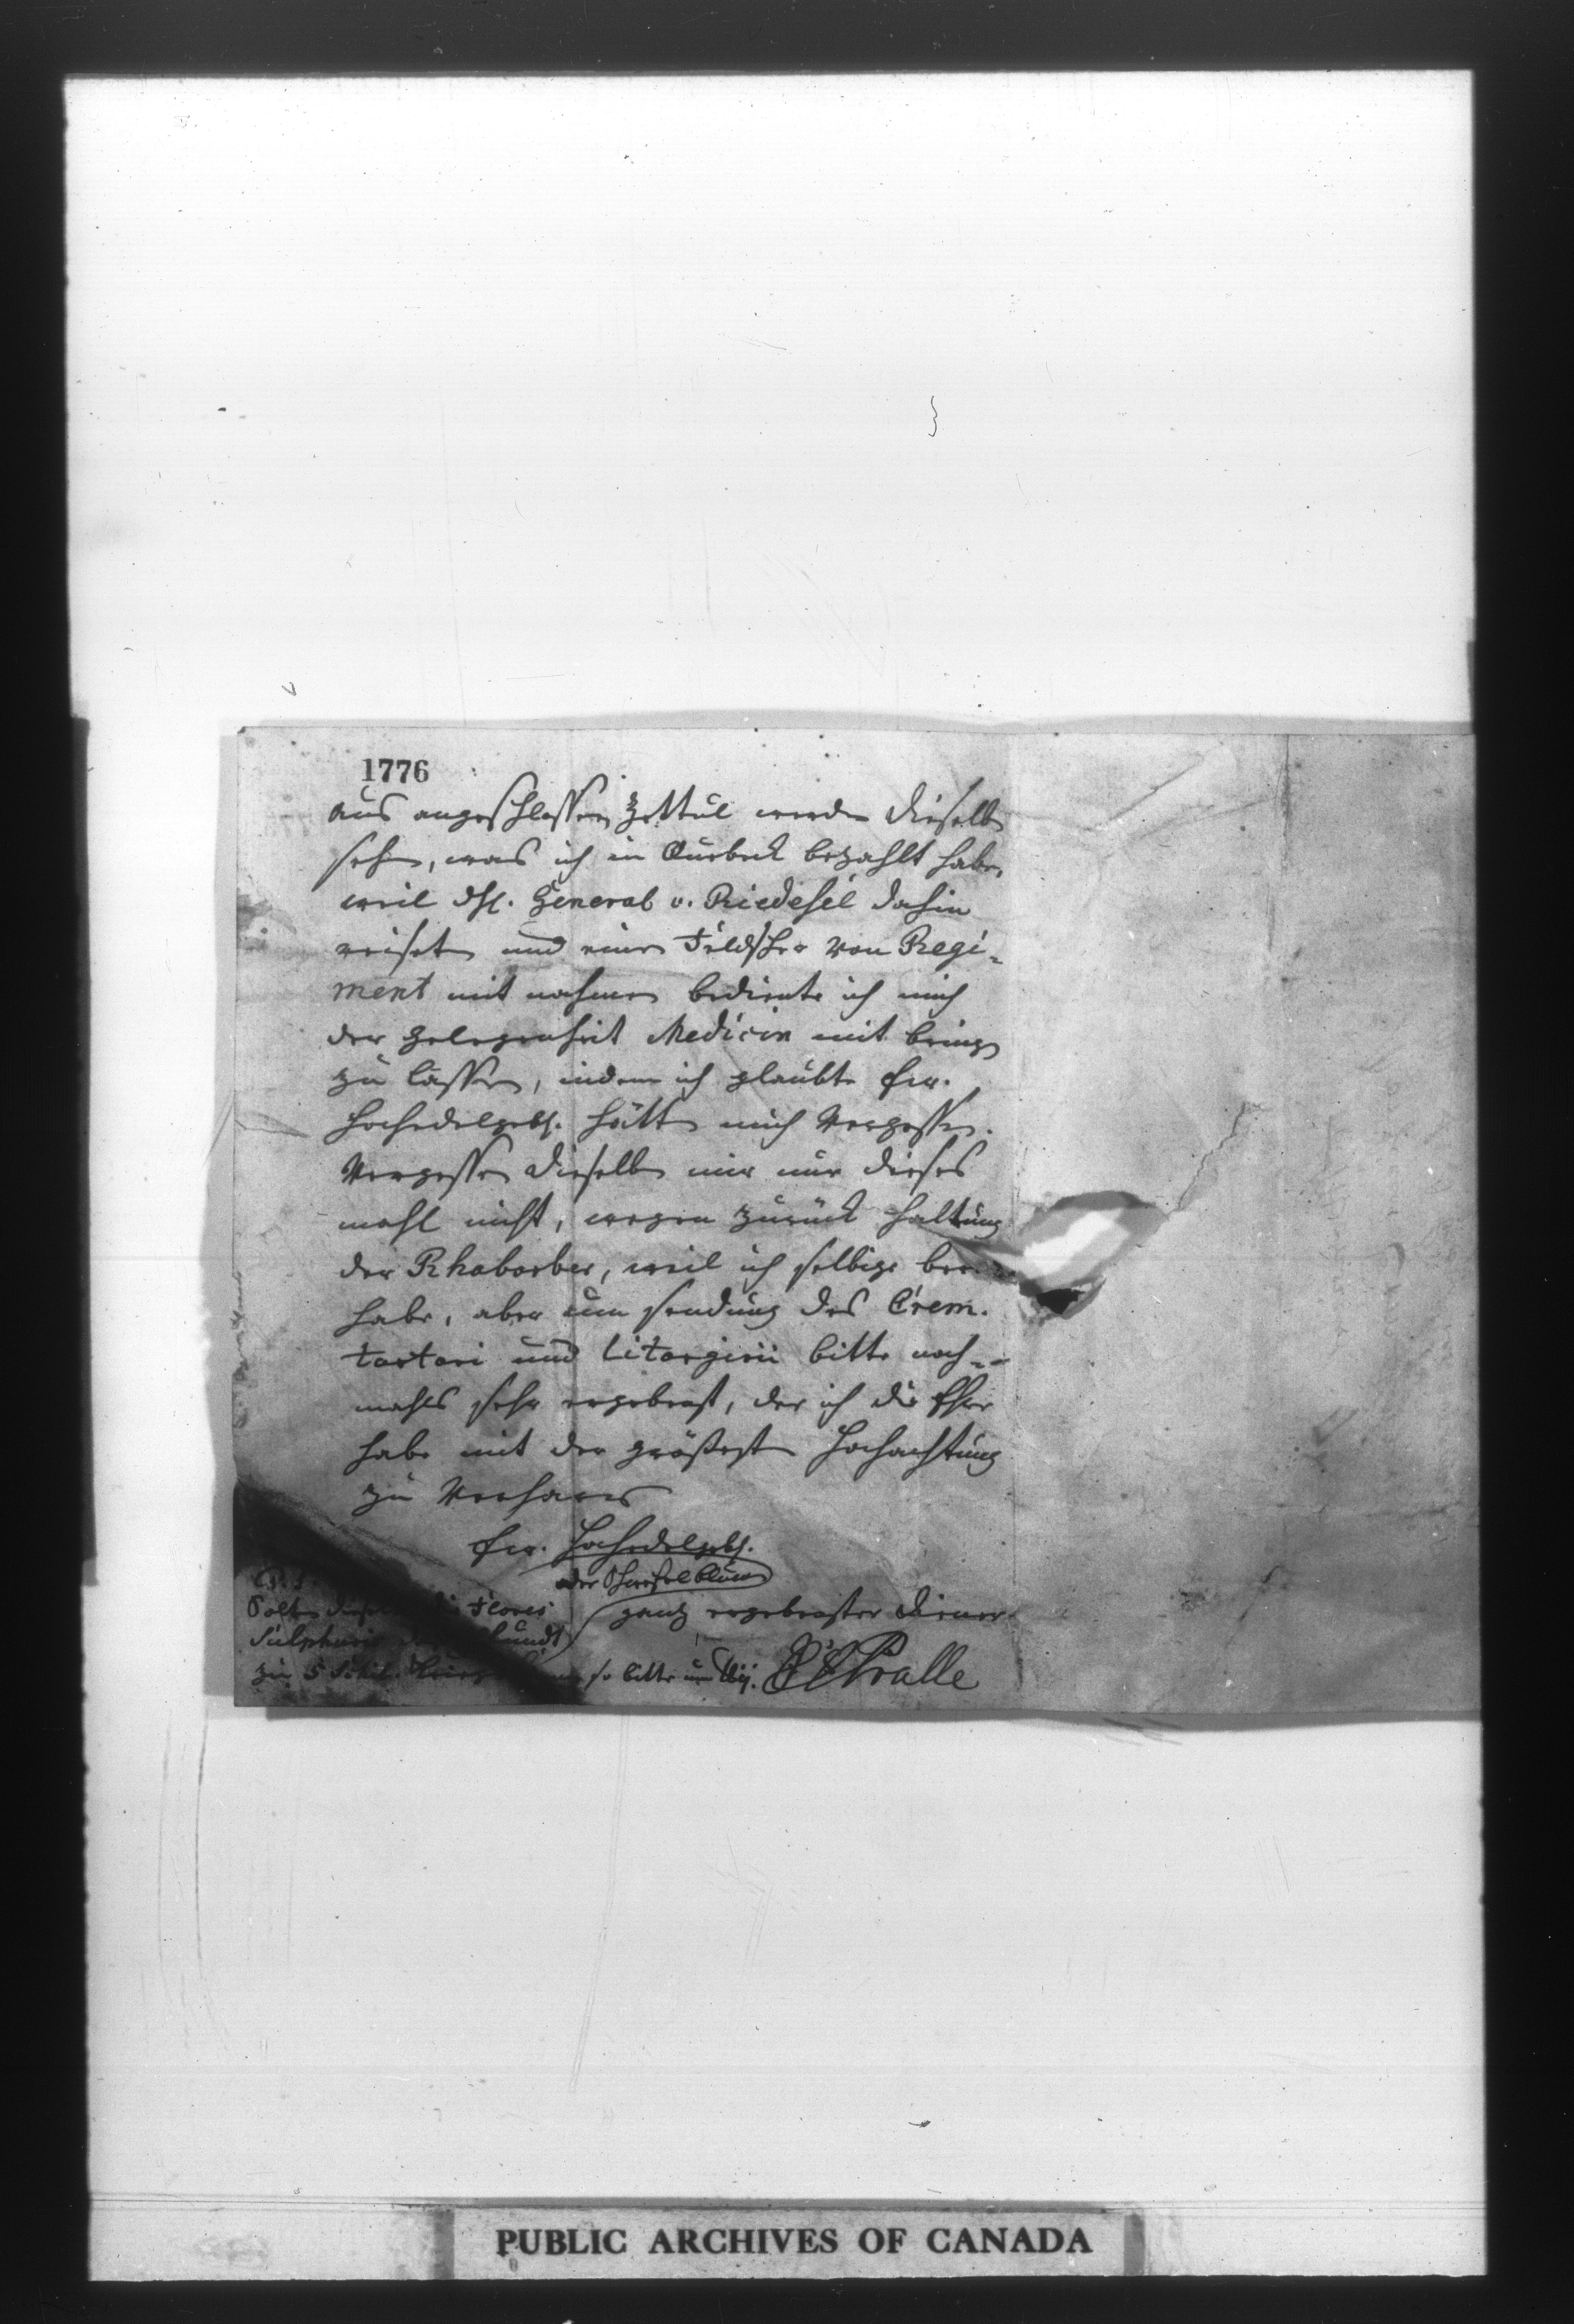 1776
aus angeschlossen Zettul werden dieselben
sehen, was ich in Quebeck bezahlt habe,
weil General v. Riedesel dahin
reiseten und einen Feldscher von Regi=
ment mit nahmen bediente ich mich
der gelegenheit Medicin mit bringen
zu lassen, indem ich glaubte Ew.
Hochedelgebh. hätten mich Vergessen.
Vergessen dieselben mir nur dieses
mahl nicht, wegen zurück haltung
der Rhabarber, weil ich selbige
habe, aber um sendung des Crem.
tartari und Litargirii bitte noch=
mahls sehr ergebenst, der ich die Ehre
habe mit der größesten Hochachtung
zu Verharren
Ew. Hochedelgebh.
oder Schwefelblumen
ganz ergebenster Diener
P.S.
Solten Flores
Sulphuris
zu 5 Schil. so bitte um
Pralle
PUBLIC ARCHIVES OF CANADA